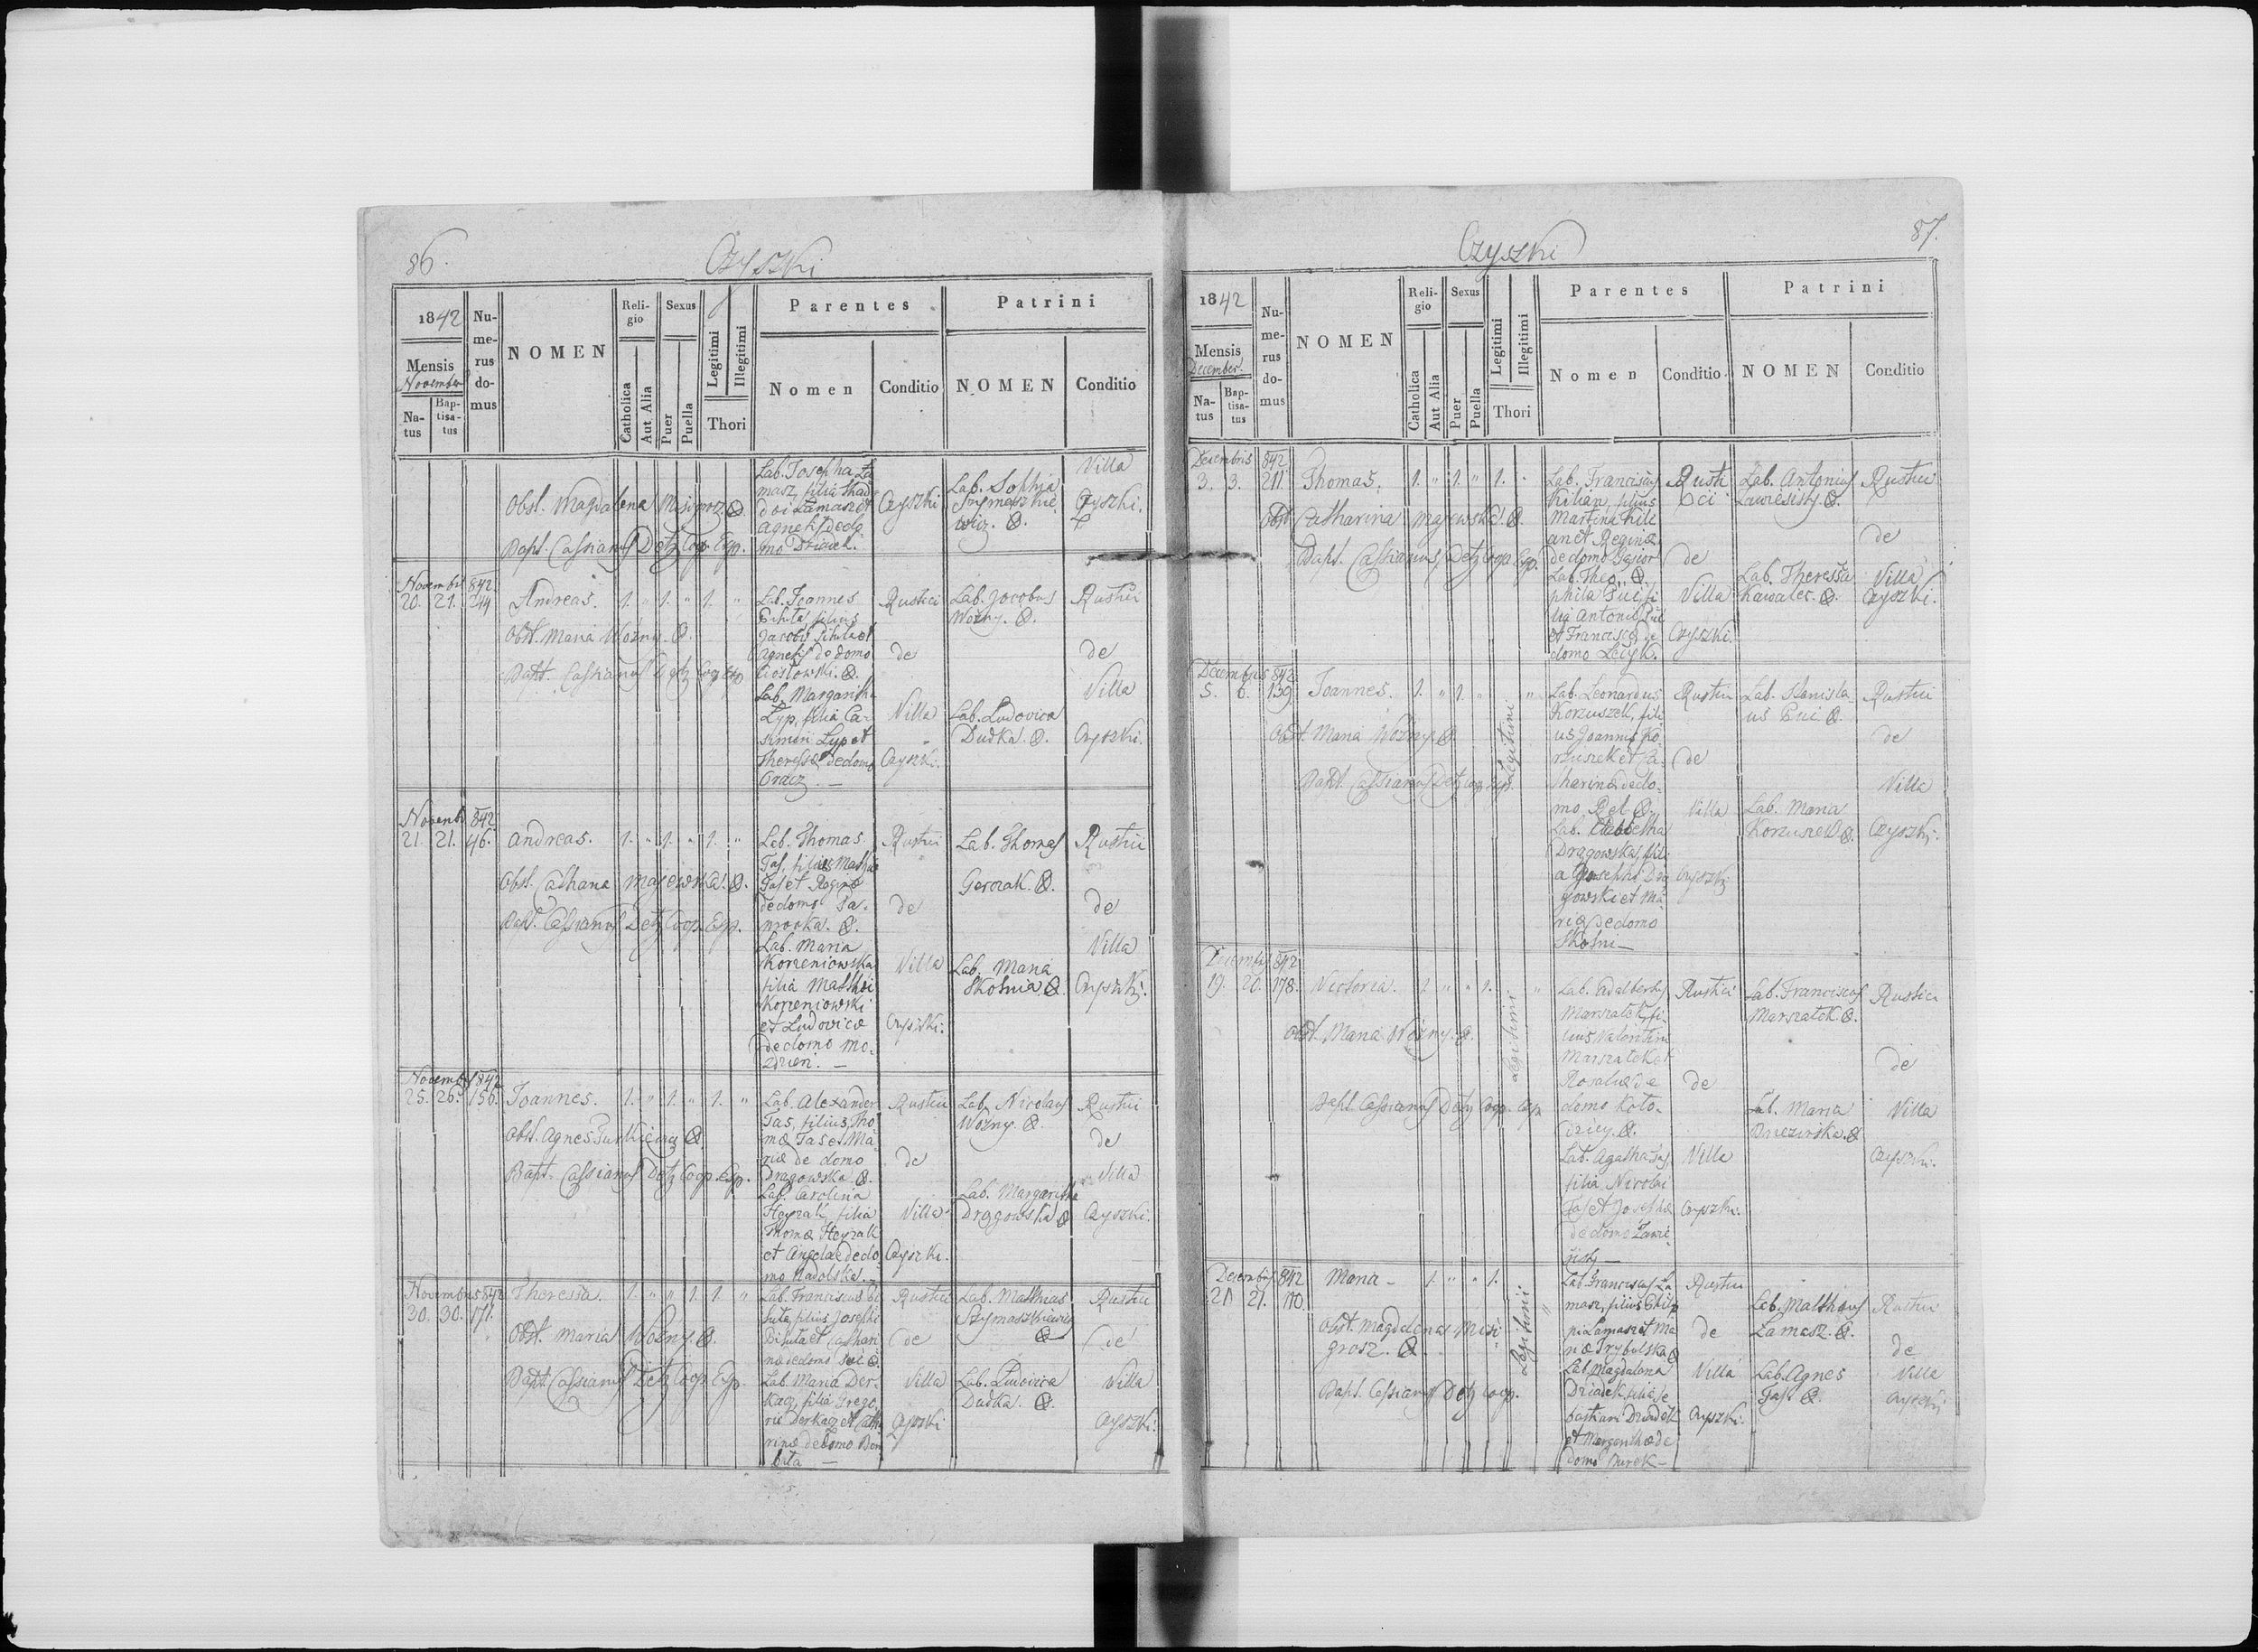 86.
Czyszki
1842
Mensis
November
Na-
tus
Bap-
tisa-
tus
Nu-
me-
rus
do-
mus
NOMEN
Reli-
gio
Catholica
Aut Alia
Sexus
Puer
Puella
Legitimi
Illegitimi
Thori
Parentes
Nomen
Conditio
Patrini
NOMEN
Conditio
Obst. Magdalena
Bapt. Cassianus Detz Coop. Exp.
Lab. Josepha Ła
masz, filia Thad
dei Łamasz et
Agnetis de do
mo Dziadek.
Czyszki
Lab. Sophia
Szymaszkie
wicz.
Villa
Czyszki.
Novembris 842.
20. 21. 214
Andreas. 1. " 1. " 1. "
Obst. Maria Woźny.
Bapt. Cassianus Detz Coop Exp
Lab. Joannes
filius
Jacobi
Agnetis de domo
Lab. Margaritha
Lyp, filia Ca-
simiri Lyp et
Theressæ de domo
Gracz. —
Rustici
de
Villa
Czyszki.
Lab. Jacobus
Woźny.
Lab. Ludovica
Dudka.
Rustici
de
Villa
Czyszki.
Novemb. 842.
21. 21. 46.
Andreas. 1. " 1. " 1. "
Obst. Majewska.
Bapt. Cassianus Detz Coop. Exp.
Lab. Thomas
Tas, filius Mathiæ
Tas et Reginæ
de domo
Lab. Maria
Korzeniowska
filia Matthæi
Korzeniowski
et Ludovicæ
de domo Mo-
Rustici
de
Villa
Czyszki.
Lab. Thomas
Lab. Maria
Skośnia
Rustici
de
Villa
Czyszki.
Novemb. 842
25. 26. 156.
Joannes. 1. " 1. " 1. "
Obst. Agnes
Bapt. Cassianus Detz Coop. Exp.
Lab. Alexander
Tas, filius Tho
mæ Tas et Ma
riæ de domo
Dragowska
Lab. Carolina
Heyzak, filia
Thomæ Heyzak
et Angelæ de do
mo Nadolska.
Rustici
de
Villa
Czyszki.
Lab. Nicolaus
Woźny.
Lab. Margaritha
Dragowska
Rustici
de
Villa
Czyszki.
Novembris 842
30. 30. 171.
Theressa. 1. " " 1. 1. "
Obst. Maria Woźny.
Bapt. Cassianus Detz Coop. Exp.
Lab. Franciscus
filius Josephi
et Cathari
næ de domo
Lab. Maria Der-
kacz, filia Grego
rii Derkacz et Catha
rinæ de domo
Rustici
de
Villa
Czyszki
Lab. Mathias
Szymaszkiewicz
Lab. Ludovica
Dudka.
Rustici
de
Villa
Czyszki.
87.
Czyszki
1842
Mensis
December.
Na-
tus
Bap-
tisa-
tus
Nu-
me-
rus
do-
mus
NOMEN
Reli-
gio
Catholica
Aut Alia
Sexus
Puer
Puella
Legitimi
Illegitimi
Thori
Parentes
Nomen
Conditio.
Patrini
NOMEN
Conditio
Decembris 842
3. 3. 211.
Thomas. 1. " 1. " 1. "
Obst. Catharina Majewska.
Bapt. Cassianus Detz Coop Exp.
Lab. Franciscus
Kilian, filius
Martini Kili
an et Reginæ
de domo Gąsior
Lab. Theo
phila Puc, fi
lia Antonii Puc
et Franciscæ de
domo
Rusti
ci
de
Villa
Czyszki.
Lab. Antonius
Lab. Theressa
Kawalec.
Rustici
de
Villa
Czyszki.
Decembris 842
5. 6. 139.
Joannes. 1. " 1. "
Legitimi
Obst. Maria Woźny.
Bapt. Cassianus Detz Coop Exp.
Lab. Leonardus
Korzuszek, fili
us Joannis Ko
rzuszek et Ca-
tharinæ de do-
mo
Lab. Elabetha
Dragowska, fili
a Josephi Dra
gowski et Ma
riæ de domo
Skośni —
Rustici
de
Villa
Czyszki
Lab. Stanisla
us Puc
Lab. Maria
Korzuszek
Rustici
de
Villa
Czyszki.
Decembris 842
19. 20. 178.
Victoria. 1. " " 1.
Legitimi
Obst. Maria Woźny.
Bapt. Cassianus Detz Coop. Exp
Lab. Adalbertus
Marszałek, fi
lius Valentini
Marszałek et
Rosaliæ de
domo Koło-
Lab. Agatha Tas,
filia Nicolai
Tas et Josephæ
de domo
Rustici
de
Villa
Czyszki.
Lab. Franciscus
Marszałek.
Lab. Maria
Rustici
de
Villa
Czyszki.
Decembris 842
21 21. 110.
Maria - 1. " " 1.
Legitimi
Obst. Magdalena
Bapt. Cassianus Detz Coop.
Lab. Franciscus Ła
masz, filius Phili
pi Łamasz et Ma
riæ Trybulska
Lab. Magdalena
Dziadek, filia Se
bastiani Dziadek
et Margarithæ de
domo Burek —
Rustici
de
Villa
Czyszki.
Lab. Matthæus
Łamasz.
Lab. Agnes
Tas
Rustici
de
Villa
Czyszki